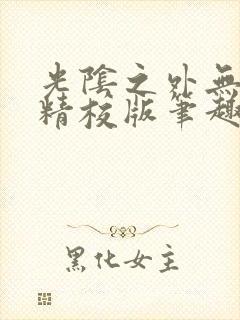 光陰之外無
精校版筆趣
黑化女主